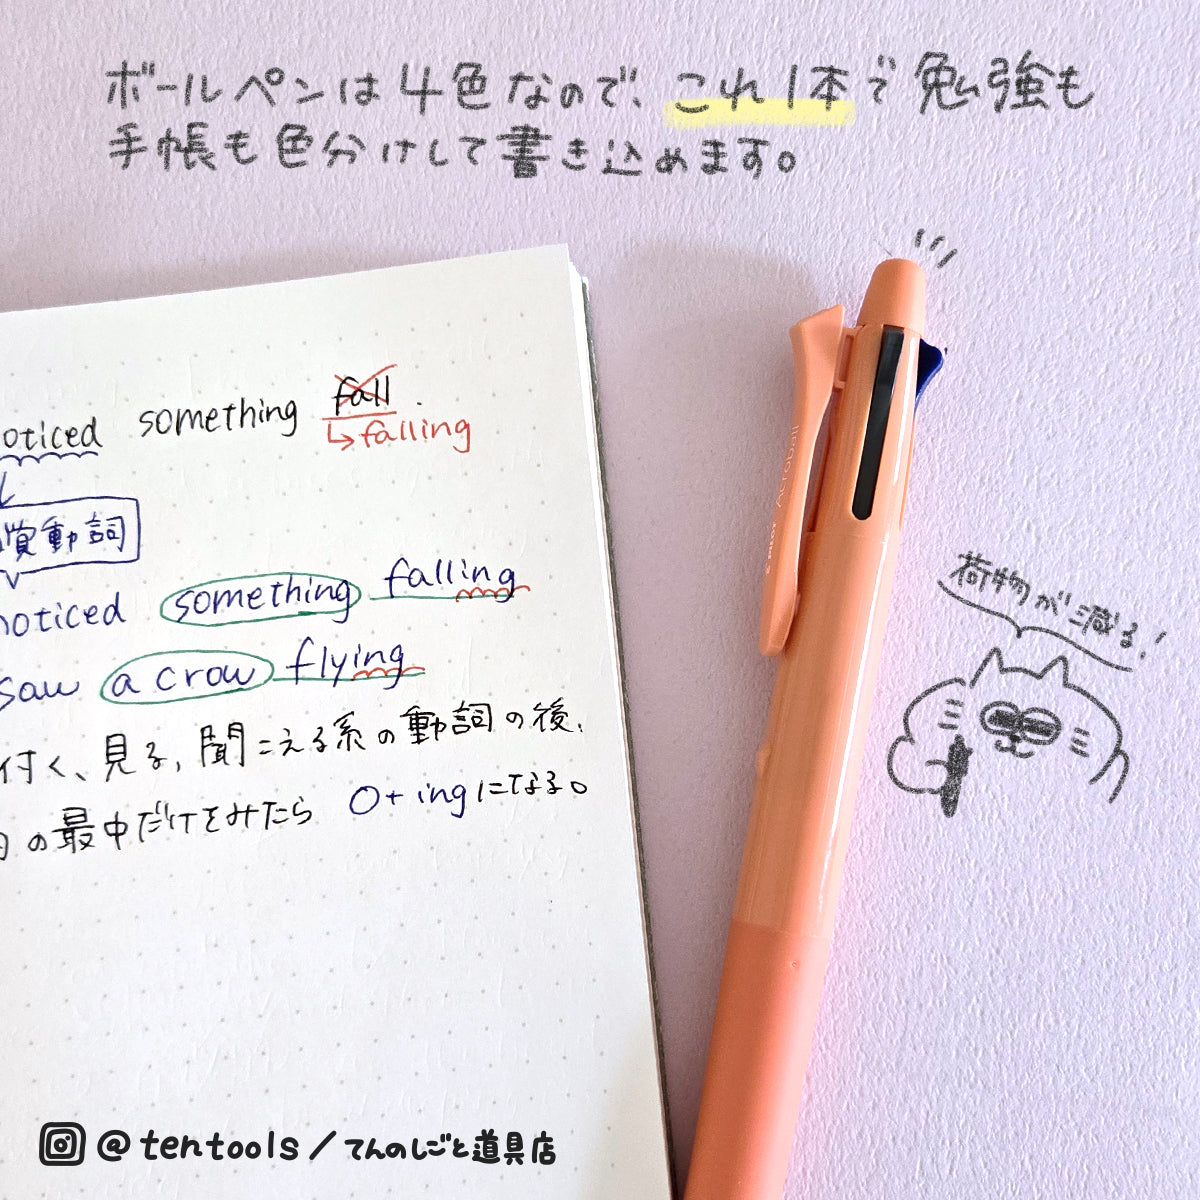 ボールペンは4色なので、これ1本で勉強も
手帳も色分けして書き込めます。
oticed something fall.
↳falling
賞動詞
noticed something falling
saw a crow flying
付く、見る、聞こえる系の動詞の後、
の最中だけをみたら O+ingになる。
PILOT Acroball
荷物が減る!
@tentools/てんのしごと道具店